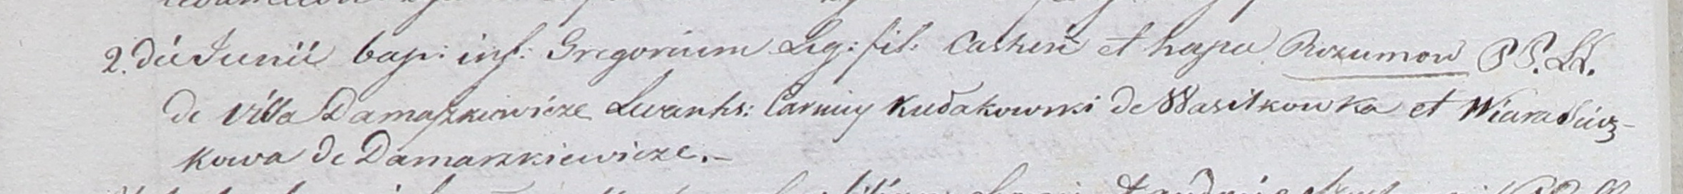 2. die Junii bap: inf: Gregorium Leg: fil: et Hapa Rozumow P P. LL.
de Villa Damaszkiewicze Levantes: Kudakowski de Wasilkowka et Wiara
kowa de Damaszkiewicze.–